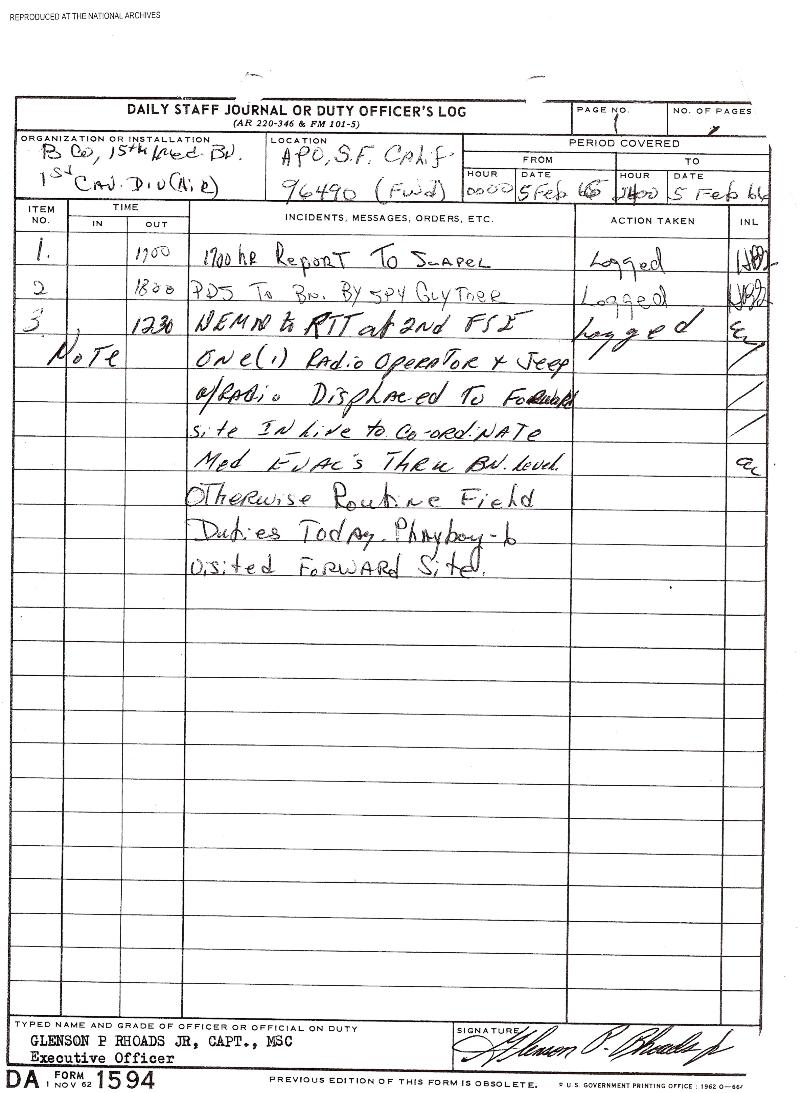 REPRODUCED AT THE NATIONAL ARCHIVES
DAILY STAFF JOURNAL OR DUTY OFFICER'S LOG
(AR 220-346 & FM 101-5)
PAGE NO.
1
NO. OF PAGES
1
ORGANIZATION OR INSTALLATION
B Co, 15th Med. Bn.
1st CAV. DIV (AIR)
LOCATION
APO, S.F. CALIF.
96490 (Fwd)
PERIOD COVERED
FROM
TO
HOUR
0000
DATE
5 Feb 66
HOUR
2400
DATE
5 Feb 66
ITEM NO.
TIME
IN
OUT
INCIDENTS, MESSAGES, ORDERS, ETC.
ACTION TAKEN
INL
1. 1700 1700 hr Report To Scapel Logged
2 1800 PDS To Bn. By SP4 Logged
3 1230 to RTT at 2nd Logged
Note One (1) Radio Operator & Jeep
w/Radio Displaced To Forward
site IN Line to Co-ordinate
Med EVAC's Thru BN. level.
Otherwise Routine Field
Duties Today. Playboy-6
visited Forward Site.
TYPED NAME AND GRADE OF OFFICER OR OFFICIAL ON DUTY
GLENSON P RHOADS JR, CAPT., MSC
Executive Officer
SIGNATURE
Glenson P. Rhoads Jr
DA FORM 1 NOV 62 1594
PREVIOUS EDITION OF THIS FORM IS OBSOLETE.
U.S. GOVERNMENT PRINTING OFFICE : 1962 O—66